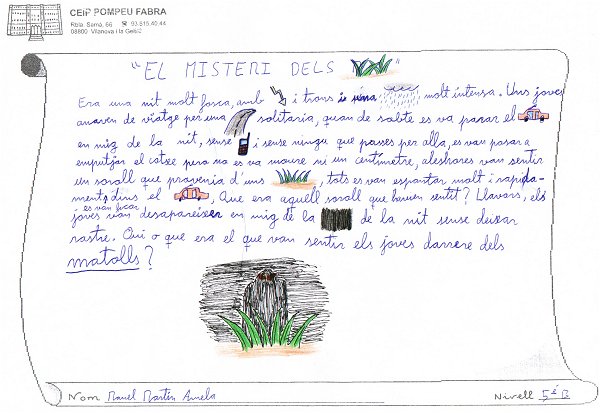 CEIP POMPEU FABRA
Rbla. Samà, 66 ☎ 93.815.40.44
08800 Vilanova i la Geltrú
"EL MISTERI DELS "
Era una nit molt fosca, amb i trons i una molt intensa. Uns joves
anaven de viatge per una solitària, quan de sobte es va parar el
en mig de la nit, sense i sense ningu que passes per alla, es van posar a
emputjar el cotxe pero no es va moure ni un centimetre, aleshores van sentir
un soroll que provenia d'uns , tots es van espantar molt i rapida-
ment es van ficar dins el . Que era aquell soroll que havien sentit? Llavors, els
joves van desapareixer en mig de la de la nit sense deixar
rastre. Qui o que era el que van sentir els joves darrere dels
matolls?
Nom Manel Martín Nivell 5è B